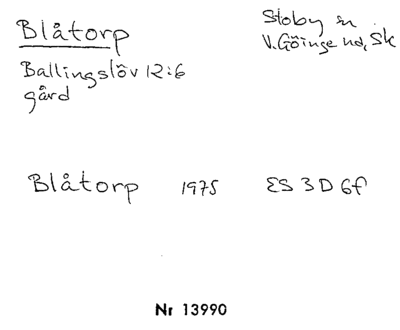 Blåtorp
Stoby sn
V. Göinge hd, Sk
Ballingslöv 12:6
gård
Blåtorp 1975 ES 3D 6f
Nr 13990